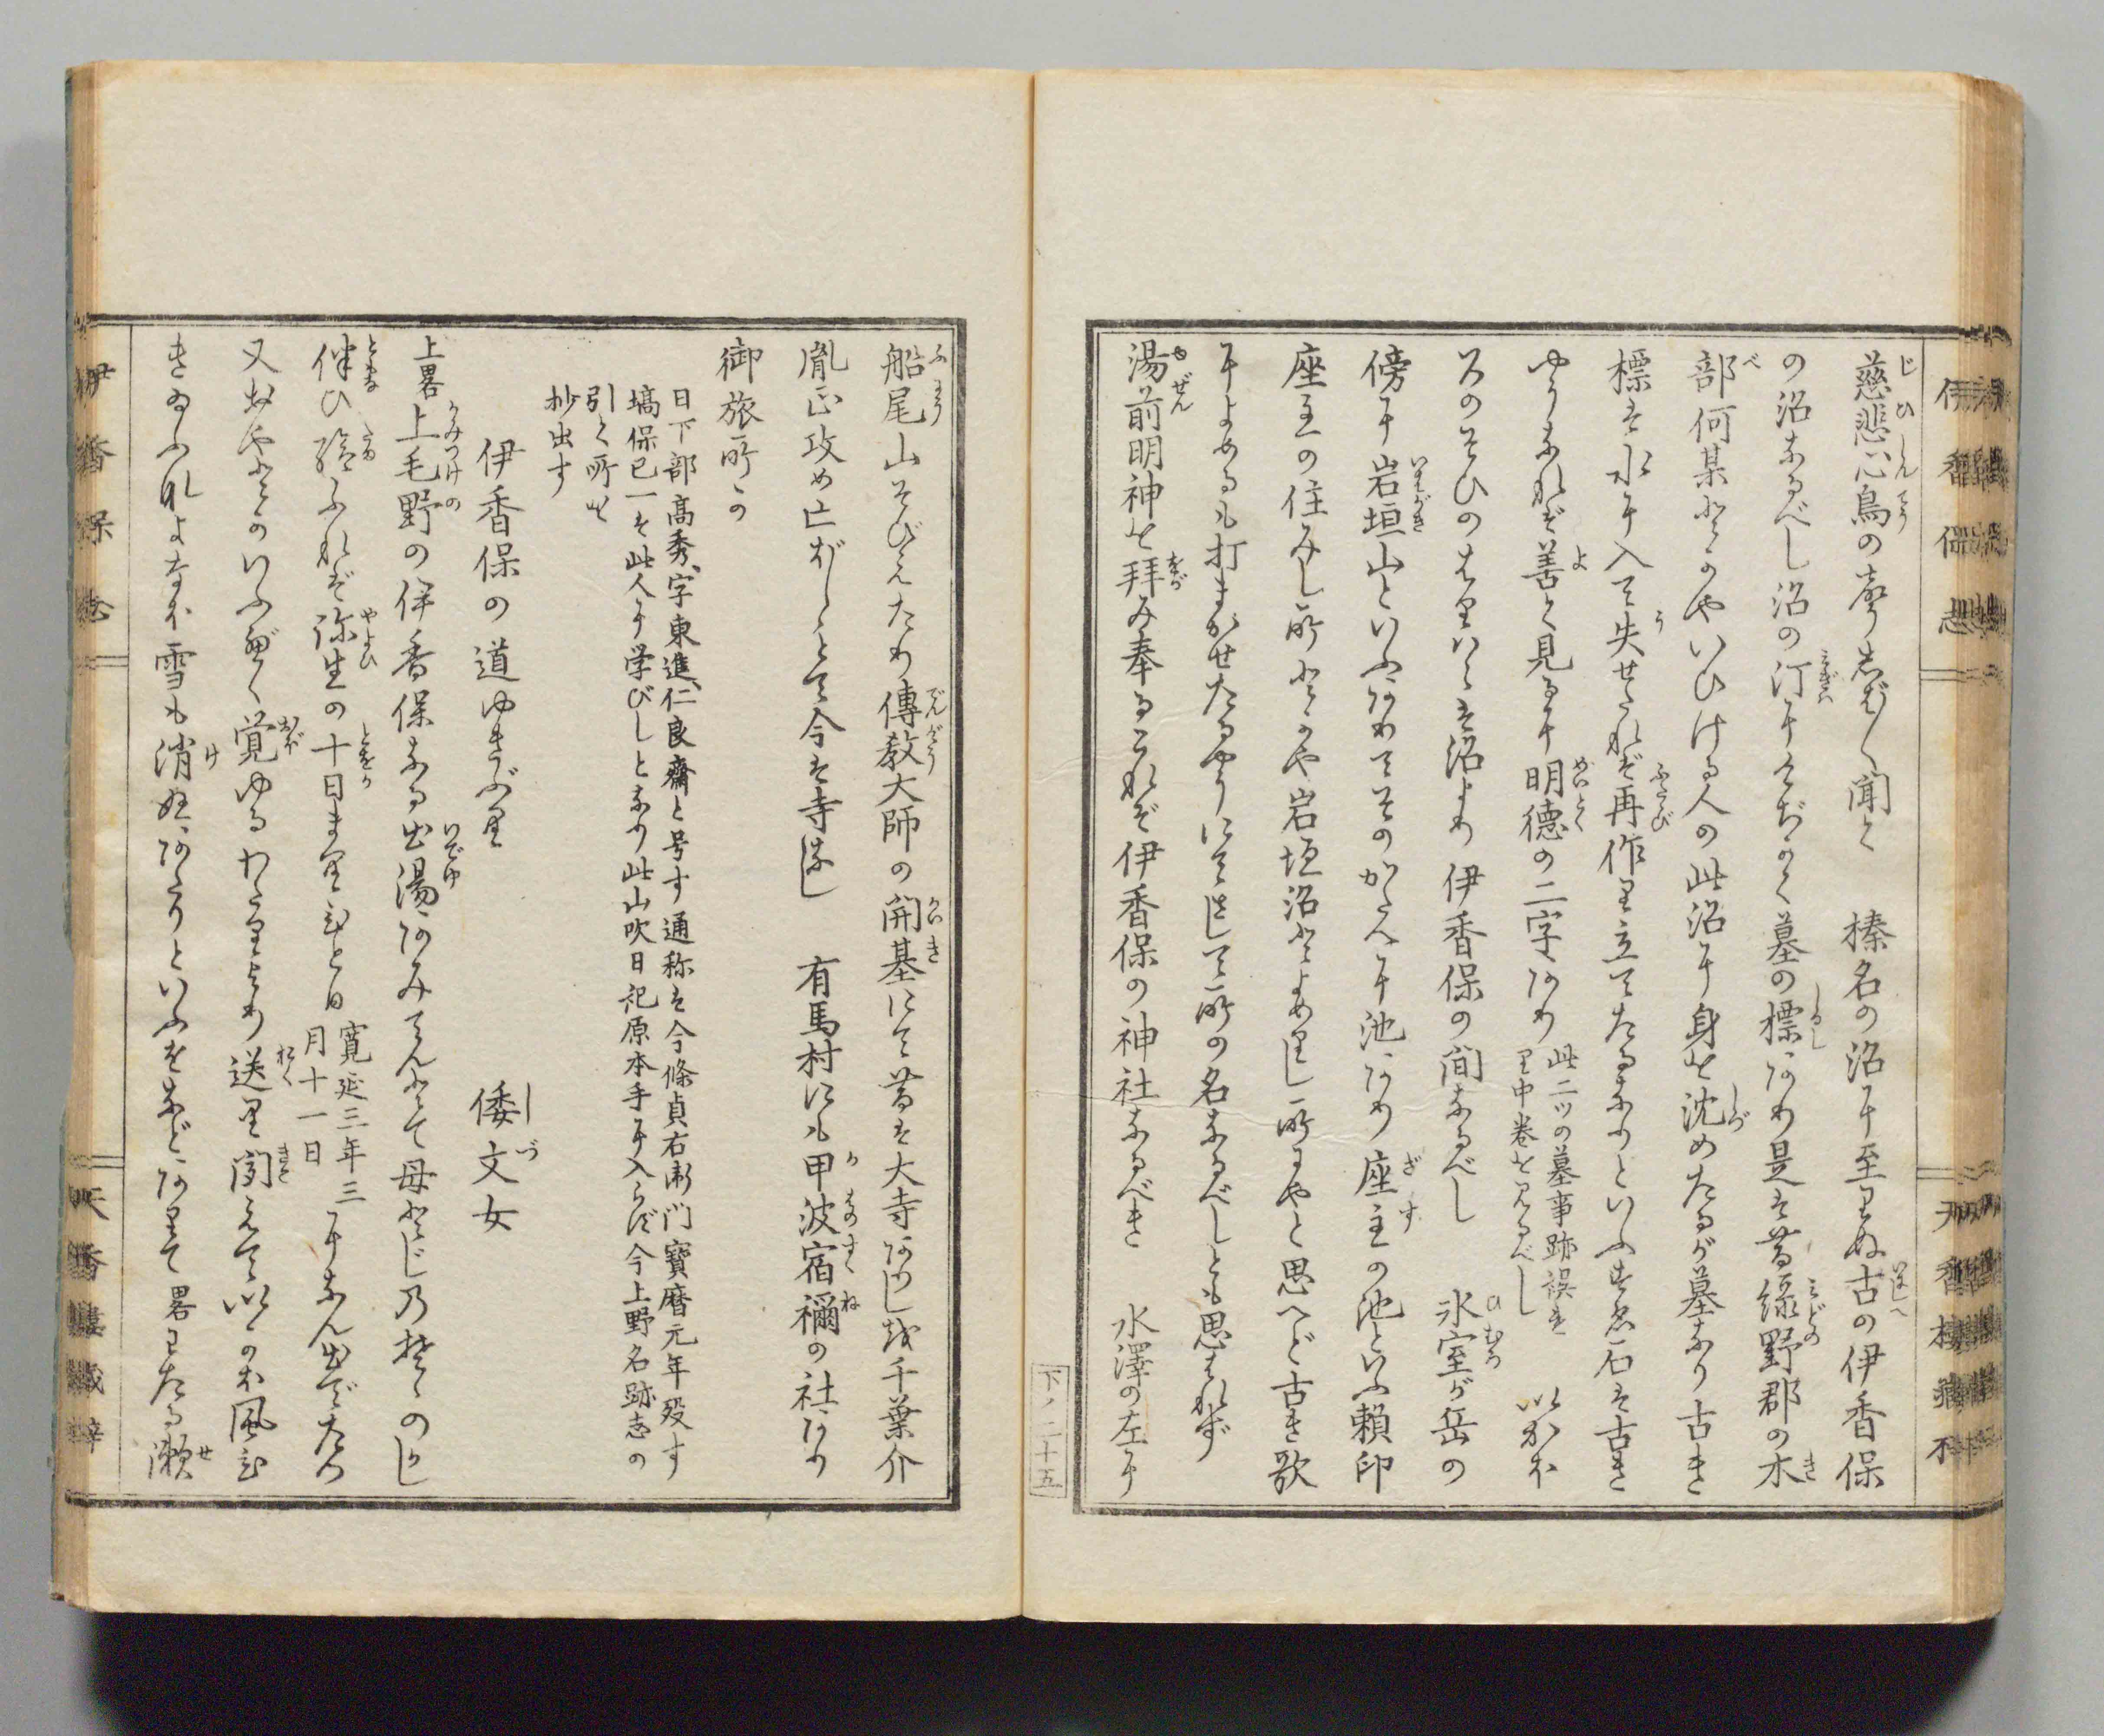 慈悲心鳥の声しば〳〵聞く　榛名の沼に至りぬ古の伊香保
の沼なるべし沼の汀にそぢかく墓の標あり是は昔緑野郡の木
部何某とかやいひける人の此沼に身を沈めたるが墓なり古き
標は水に入て失せたれば再作り立てたるなりといふすゑ石は古き
ゆうなれば善く見るに明徳の二字あり
此二ツの墓事跡誤は
り中巻を見るべし
いかほ
呂のそひのはりはらは沼より伊香保の間なるべし　氷室が岳の
傍に岩垣山といふありてそのかたへに池あり座主の池といふ頼印
座主の住みし所とかや岩垣沼とよめりし所にやと思へど古き歌
によめるも打まかせたるやうにてさして所の名なるべしとも思はれず
湯前明神を拝み奉るこれぞ伊香保の神社なるべき　水澤の左に
下ノ二十五
船尾山そびえたり傳教大師の開基にて昔は大寺ありしを千葉介
胤正攻め亡ぼしゝとて今は寺なし　有馬村にも甲波宿禰の社あり
御旅所か
日下部高秀、字東進、仁良齋と号す通称は今條貞右衛門寶暦元年歿す
塙保己一は此人に学びしとなり此山吹日記原本手に入らず今上野名跡志の
引く所を
抄出す
伊香保の道ゆきぶり
倭文女
上畧上毛野の伊香保なる出湯あみてんとて母とじのものしし
伴ひ給ふれば弥生の十日まりひと日
寛延三年三
月十一日
になん出でたつ
又おやとのいふ
覚ゆるわたりより送り聞えていかほ風ひ
きゐふなよなほ雪も消ぬあたりといふをなどありて畧わたる瀬
伊香保志
天香樓蔵梓